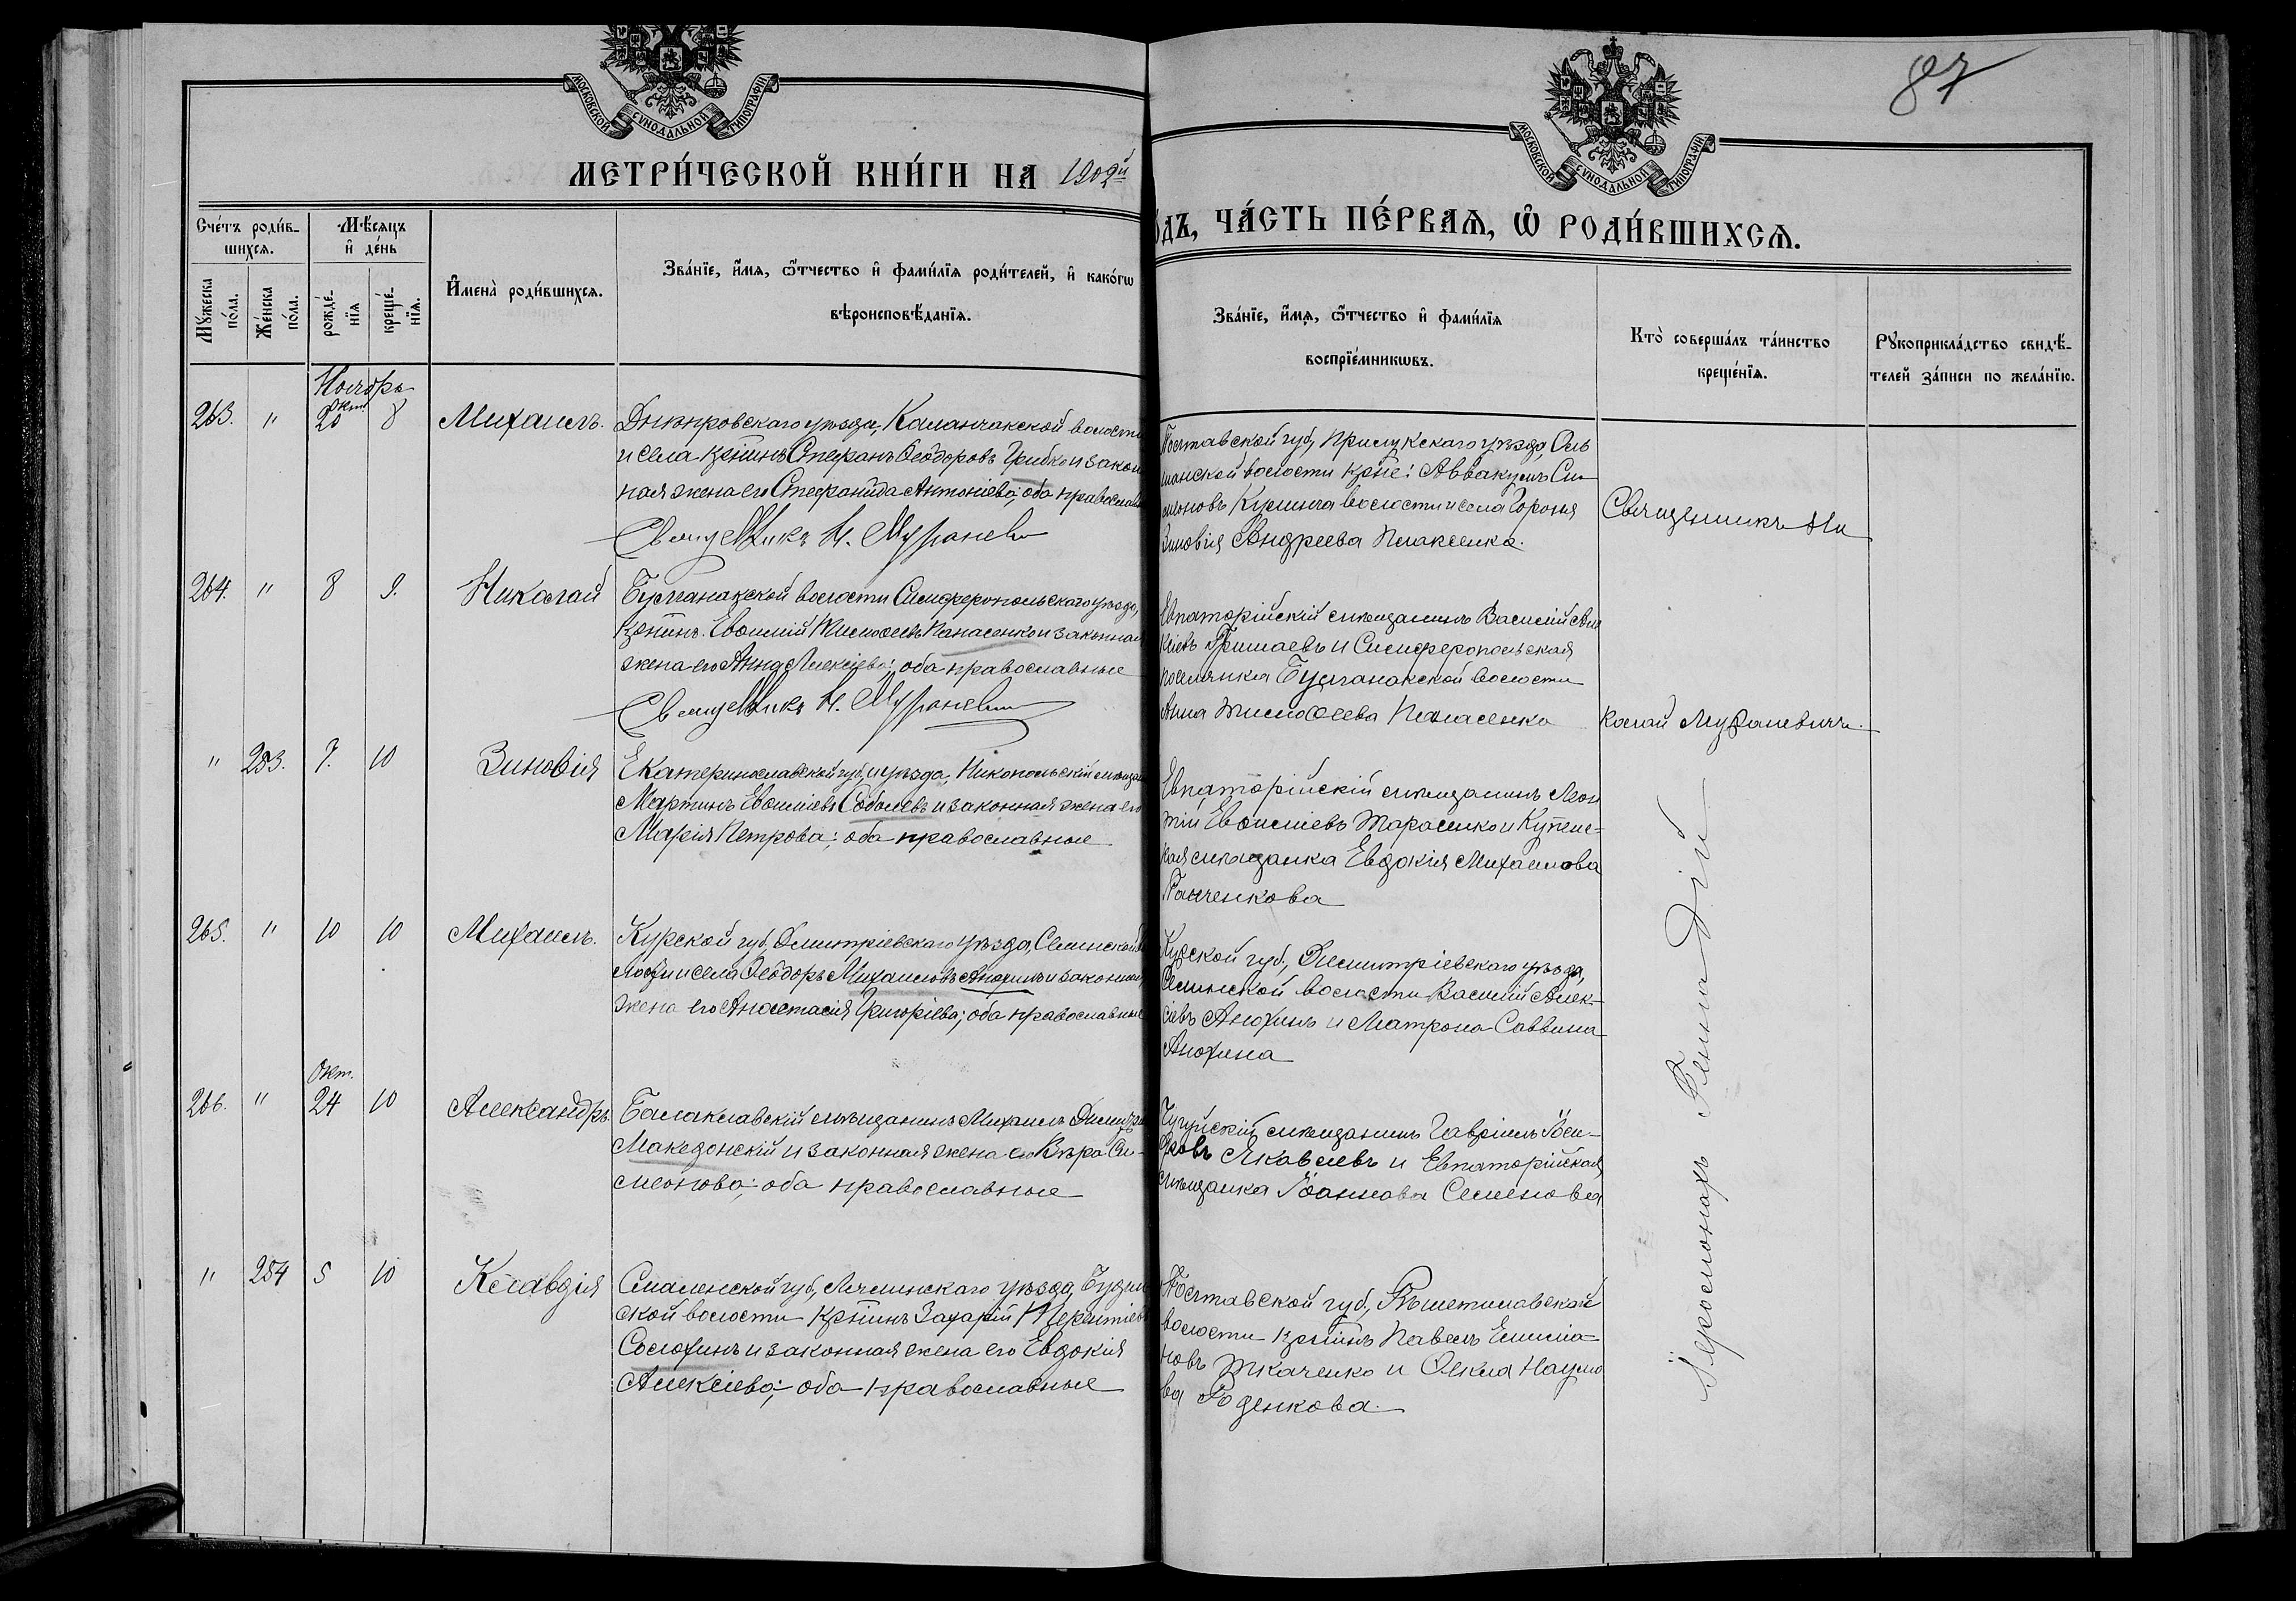 87
МОСКОВСКОЙ СѴНОДАЛЬНОЙ ТИПОГРАФІИ
МОСКОВСКОЙ СѴНОДАЛЬНОЙ ТИПОГРАФІИ
МЕТРИ́ЧЕСКОЙ КНИ́ГИ НА 1909й
ОДЪ, ЧА́СТЬ ПЕ́РВАѦ, Ѽ РОДИ́ВШИХСѦ.
Сче́тъ роди́в-
шихсѧ.
Мѣ́сяцъ
и҆ де́нь
Мꙋ́жеска
по́ла.
Же́нска
по́ла.
рожде́-
нїѧ
креще́-
нїѧ.
И҆мена̀ роди́вшихсѧ.
Зва́нїе, и҆́мѧ, ѻ҆́тчество и҆ фами́лїѧ роди́телей, и҆ како́гѡ
вѣроисповѣ́данїѧ.
Зва́нїе, и҆́мѧ, ѻ҆́тчество и҆ фами́лїѧ
воспрїе́мникѡвъ.
Кто̀ соверша́лъ та́инство
креще́нїѧ.
Рꙋкоприкла́дство свидѣ́-
телей за́писи по жела́нїю.
Ноябрь
263. " Окт 20 8 Михаилъ.
Днѣпровскаго уѣзда, Каланчакской волости
и села кр̄нинъ Стефанъ Ѳеодоровъ Грибко и закон
ная жена его Стефанида Антоніева; оба православн
Священникъ Н. Мураневич
Полтавской губ, Прилукскаго уѣзда, Оль
шанской волости кр̄не: Аввакумъ Си
меоновъ волости и села
Зиновія Андреева
Священникъ Ни
264. " 8 9. Николай
Булганакской волости Симферопольскаго уѣзда,
кр̄нинъ. Евѳимій Тимоѳеевъ Панасенко и законная
жена его Анна Алексіева; оба православные
Священникъ Н. Мураневич
Евпаторійскій мѣщанинъ Василій Але
ксіевъ Гришаевъ и Симферопольская
поселянка Булганакской волости
Анна Тимоѳеева Панасенко
колай Мураневичъ.
" 253. 7. 10 Зиновія
Екатеринославской губ, и уѣзда, Никопольскій мѣщан
Мартинъ Евѳиміевъ Соболевъ и законная жена его
Марія Петрова; оба православные
Евпаторійскій мѣщанинъ Леон
тій Евѳиміевъ Тарасенко и Купян-
ская мѣщанка Евдокія Михаилова
Ганченкова
265. " 10 10 Михаилъ.
Курской губ, Дмитріевскаго уѣзда, Селинской во
лости и села Ѳеодоръ Михаиловъ Анохинъ и законная
жена его Анастасія Григоріева; оба православные
Курской губ., Дмитріевскаго уѣзда,
Селинской волости Василій Алек-
сіевъ Анохинъ и Матрона Саввина
Анохина
Окт.
266. " 24 10 Александръ
Балаклавскій мѣщанинъ Михаилъ Димитрі
Македонскій и законная жена его Вѣра Си-
меонова; оба православные
Чугуйскій мѣщанинъ Гавріилъ Іоси-
фовъ Яковлевъ и Евпаторійская
мѣщанка Іоаннова Семенова
" 254 5 10 Клавдія
Смоленской губ, Ельнинскаго уѣзда,
ской волости кр̄нинъ Захарій Терентіевъ
Солохинъ и законная жена его Евдокія
Алексіева; оба православные
Полтавской губ, Рѣшетиловской
волости кр̄нинъ Павелъ Емиліа-
новъ Ткаченко и Ѳекла Наумо
ва Роденкова.
Іеромонахъ Геннадій